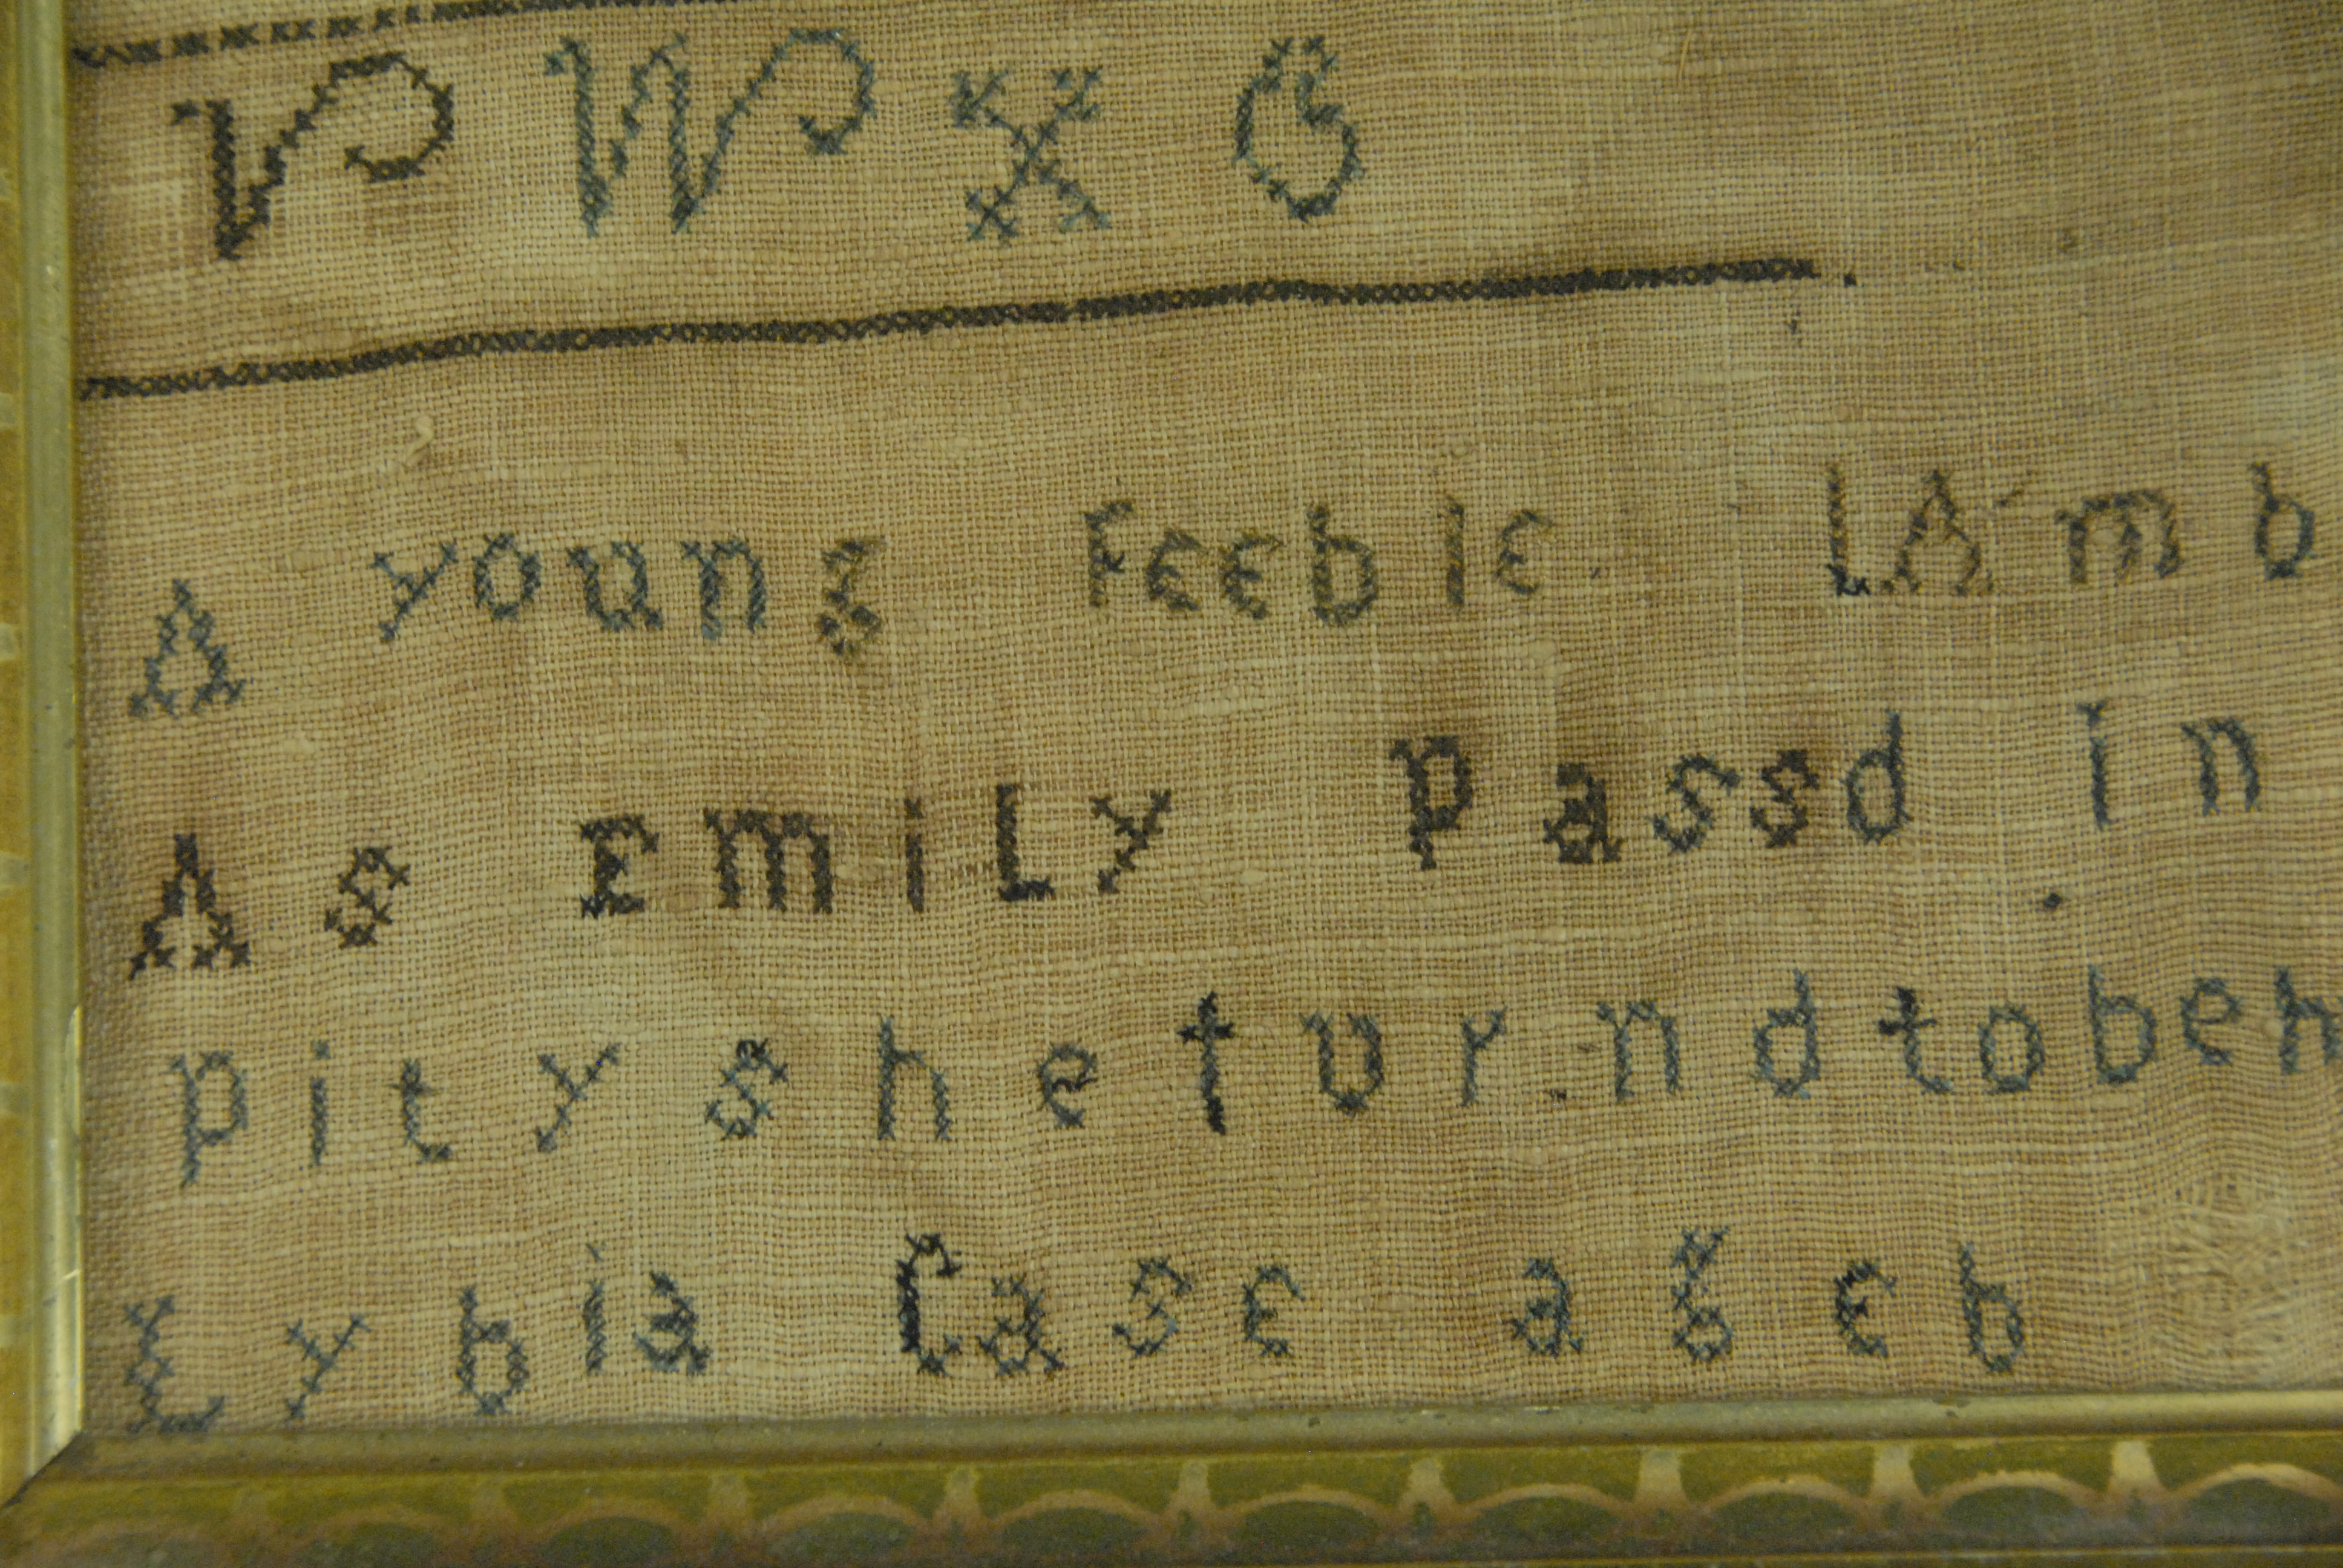 V W X G
A young FEEblE LAmb
As EmiLy Passd in
pitysheturndtobeh
Lybia Case ageb